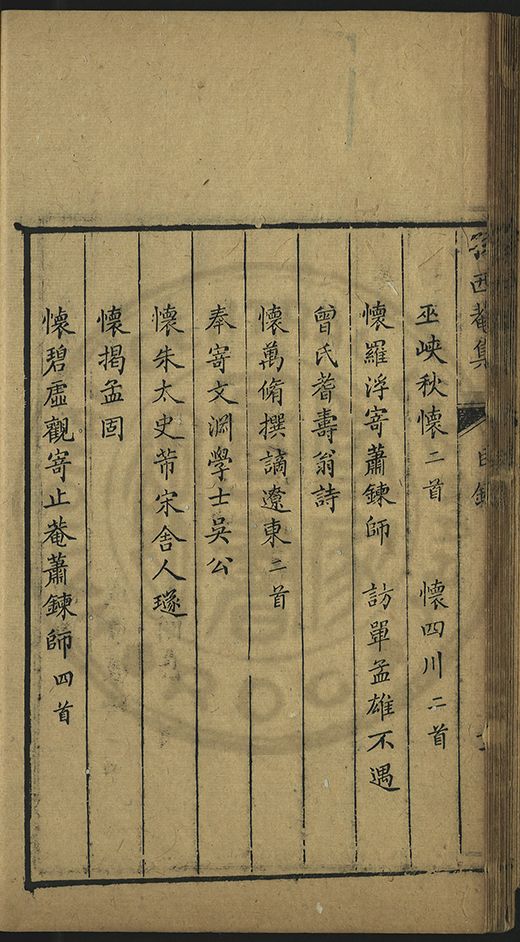 西菴集 目錄
巫峽秋懷二首 懷四川二首
懷羅浮寄蕭鍊師 訪單孟雄不遇
曾氏耆壽翁詩
懷萬脩撰謫遼東二首
奉寄文淵學士吳公
懷朱太史芾宋舍人璲
懷揭孟固
懷碧虛觀寄止菴蕭鍊師四首